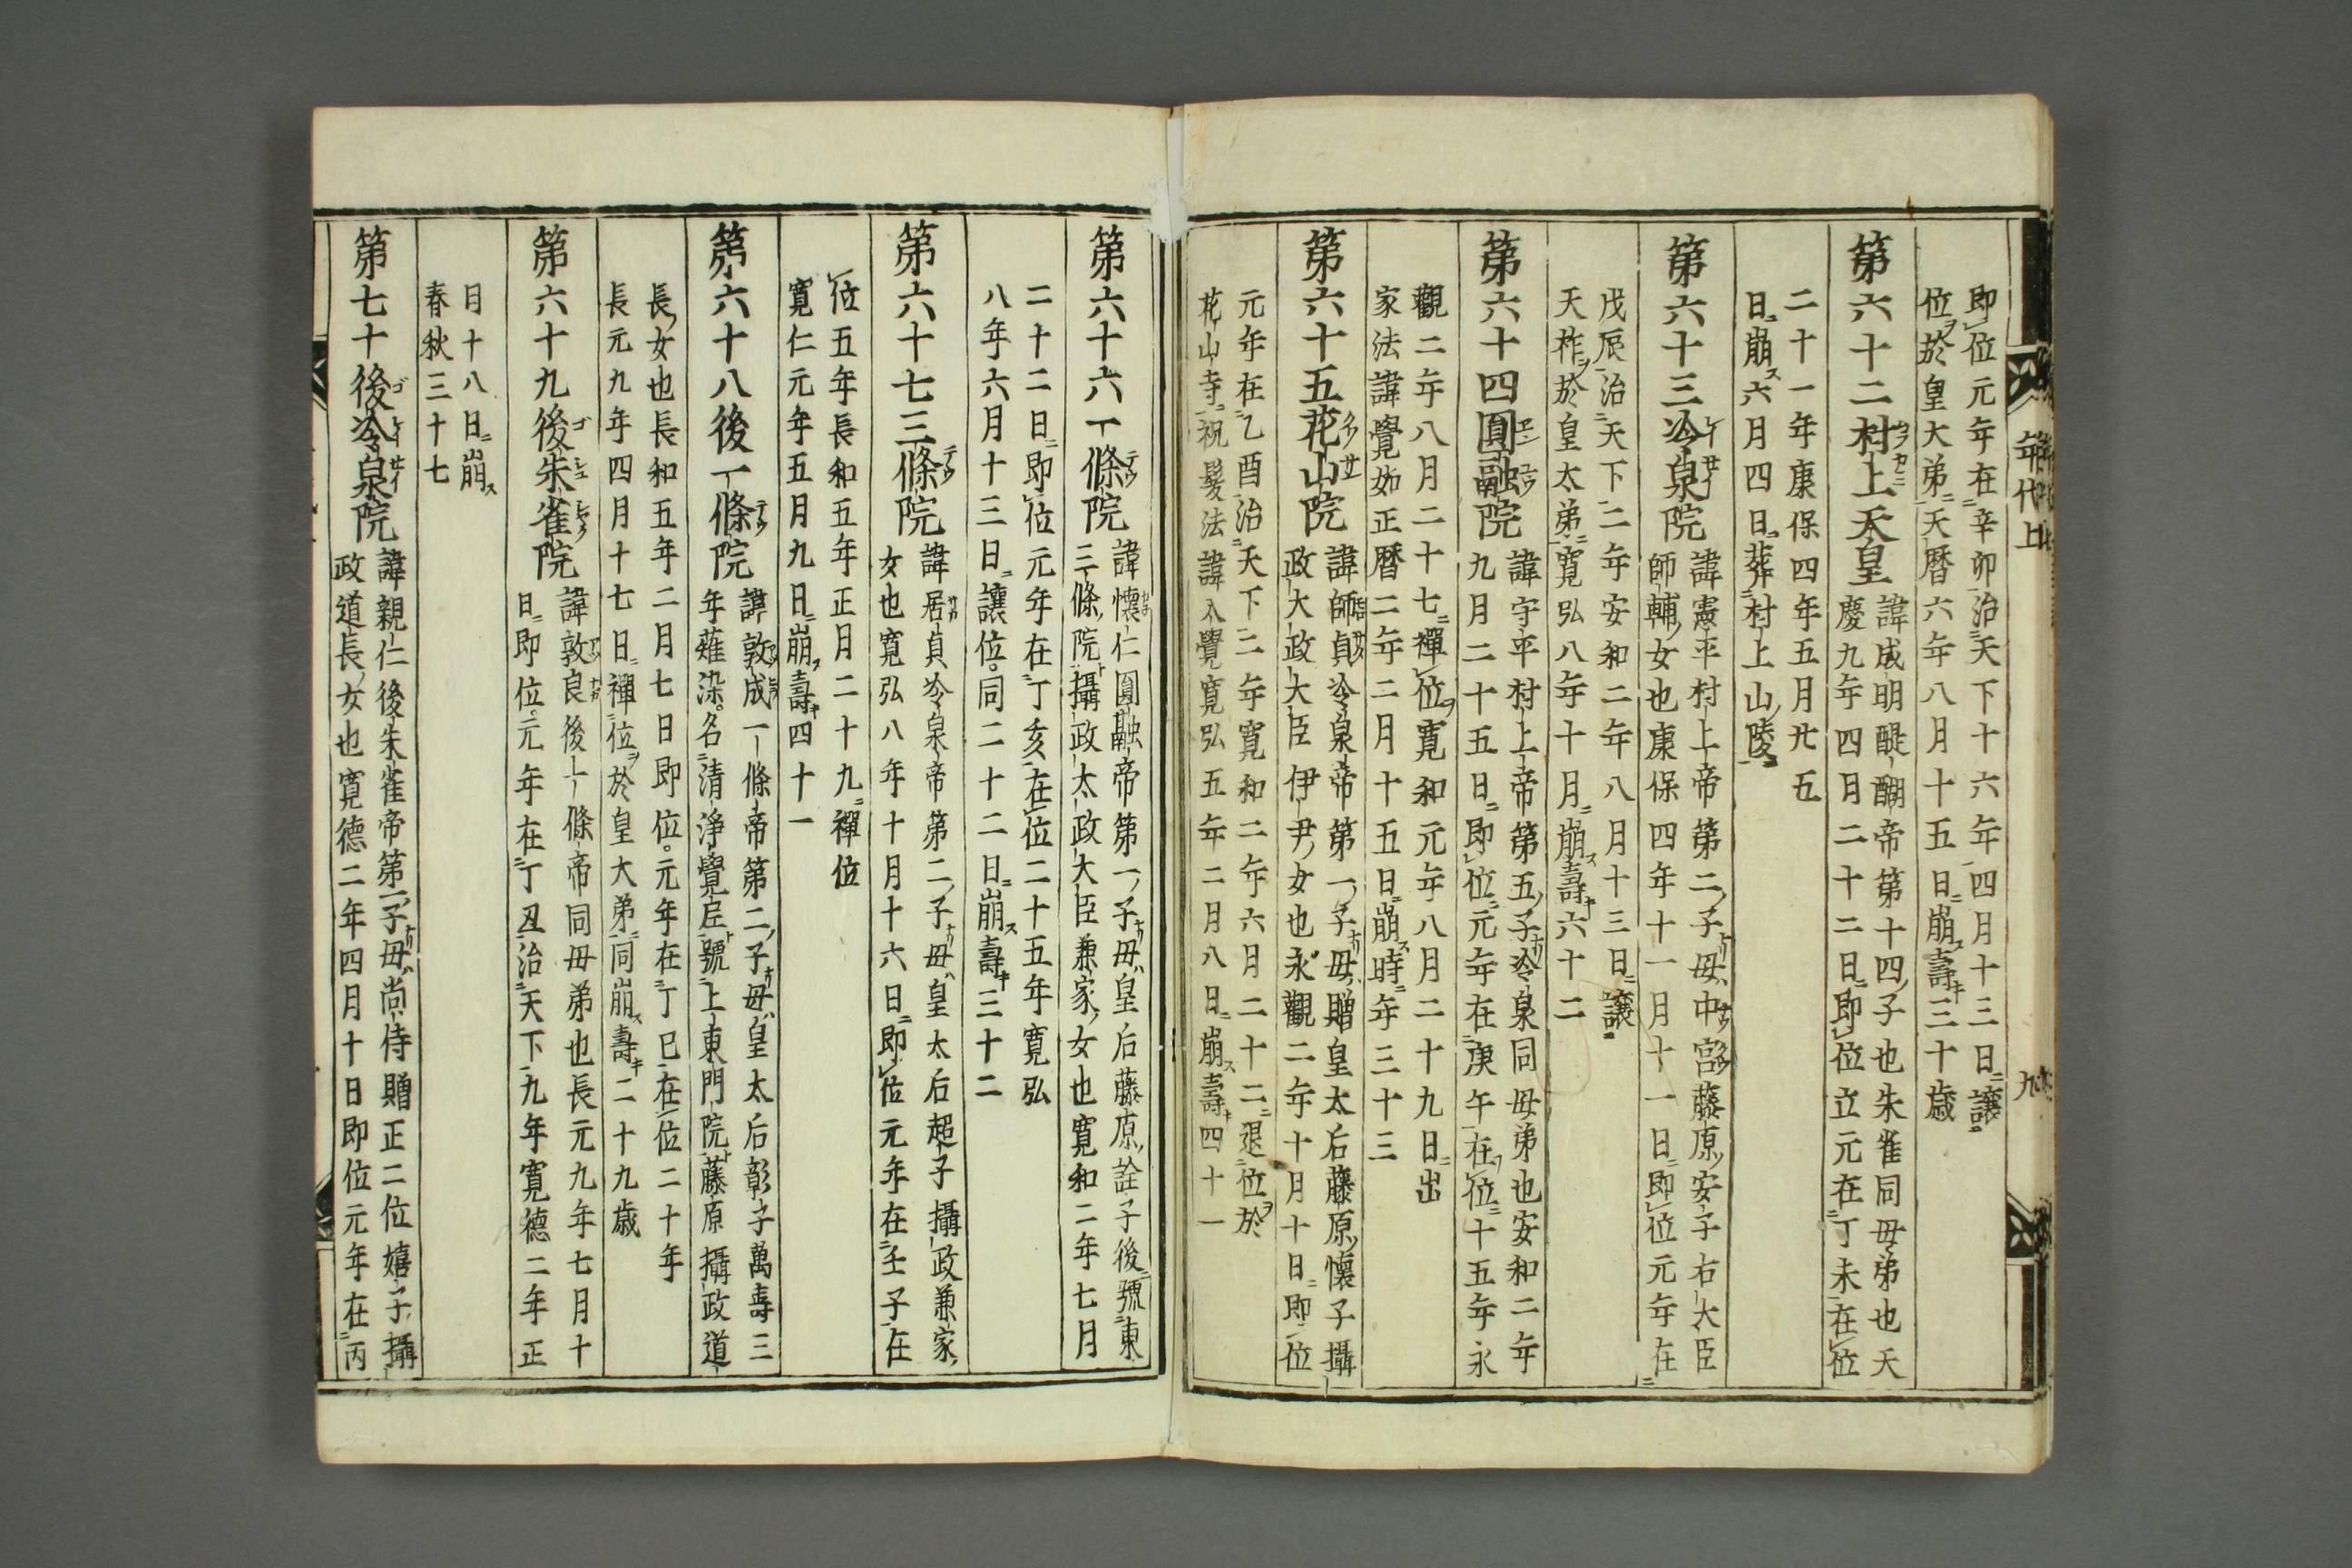 年代上
九
即位元年在辛卯治天下十六年四月十三日讓
位於皇大弟天曆六年八月十五日崩壽三十歲
第六十二村上天皇
諱成明醍醐帝第十四子也朱雀同母弟也天
慶九年四月二十二日即位立元在丁未在位
二十一年庚保四年五月廿五
日崩六月四日葬村上山陵
第六十三冷泉院
諱憲平村上帝第二子母中宮藤原安子右大臣
師輔女也康保四年十一月十一日即位元年在
戊辰治天下二年安和二年八月十三日讓
天祚於皇太弟寬弘八年十月崩壽六十二
第六十四圓融院
諱守平村上帝第五子冷泉同母弟也安和二年
九月二十五日即位元年在庚午在位十五年永
觀二年八月二十七禪位寬和元年八月二十九日出
家法諱覺如正曆二年二月十五日崩時年三十三
第六十五花山院
諱師貞冷泉帝第一子母贈皇太后藤原懷子攝
政大政大臣伊尹女也永觀二年十月十日即位
元年在乙酉治天下二年寬和二年六月二十二退位於
花山寺祝髮法諱入覺寬弘五年二月八日崩壽四十一
第六十六一條院
諱懷仁圓融帝第一子母皇后藤原詮子後號東
三條院攝政太政大臣兼家女也寬和二年七月
二十二日即位元年在丁亥在位二十五年寬弘
八年六月十三日讓位同二十二日崩壽三十二
第六十七三條院
諱居貞冷泉帝第二子母皇太后超子攝政兼家
女也寬弘八年十月十六日即位元年在壬子在
位五年長和五年正月二十九禪位
寬仁元年五月九日崩壽四十一
第六十八後一條院
諱敦成一條帝第二子母皇太后彰子萬壽三
年薙染名清淨覺后號上東門院藤原攝政道
長女也長和五年二月七日即位元年在丁巳在位二十年
長元九年四月十七日禪位於皇大弟同崩壽二十九歲
第六十九後朱雀院
諱敦良後一條帝同母弟也長元九年七月十
日即位元年在丁丑治天下九年寬德二年正
日十八日崩
春秋三十七
第七十後冷泉院
諱親仁後朱雀帝第一子母尚侍贈正二位嬉子攝
政道長女也寬德二年四月十日即位元年在丙